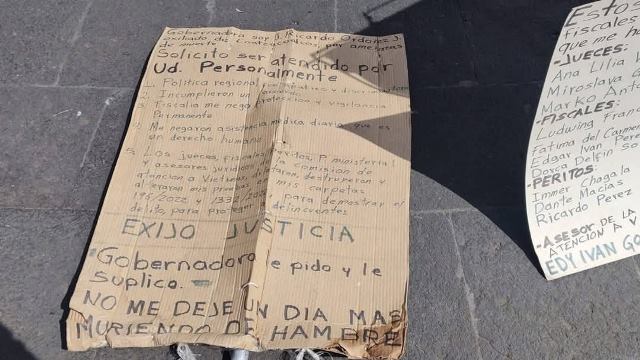 Gobernadora soy D. Ricardo Ordoñez J.
exiliado de Coatzacoalcos, por amenazas
de muerte
Solicito ser atendido por
Ud. Personalmente
1. Política regional,
2. Incumplieron un
3. Fiscalia me nega protección y vigilancia
Permanente
Me negaron asistencia médica diaria, que es
un derecho humano
5. Los jueces, fiscales, peritos, P. ministerial
y asesores jurídicos la comisión de
atención a Victimas destruyeron y
alteraron mis pruebas mis carpetas
196/2022 y para demostrar el
delito, para proteger delincuentes
EXIJO JUSTICIA
Gobernadora le pido y le
suplico.
NO ME DEJE UN DIA MAS
MURIENDO DE HAMBRE
Estos
fiscales
que me ha
-JUECES:
Ana Lilia
Miroslava
Marko Anto
-FISCALES:
Ludwing Fran
Fatima del Carme
Edgar Ivan Pere
Dorca Delfin So
-PERITOS:
Immer Chagala
Dante Macias
Ricardo Perez
-ASESOR DE LA
ATENCIÓN A V
EDY IVAN GO